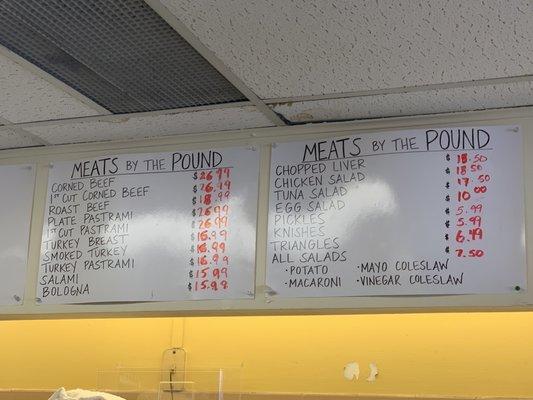 MEATS BY THE POUND
CORNED BEEF $26.99
1ST CUT CORNED BEEF $26.99
ROAST BEEF $18.99
PLATE PASTRAMI $26.99
1ST CUT PASTRAMI $26.99
TURKEY BREAST $15.99
SMOKED TURKEY $16.99
TURKEY PASTRAMI $16.99
SALAMI $15.99
BOLOGNA $15.99
MEATS BY THE POUND
CHOPPED LIVER $18.50
CHICKEN SALAD $18.50
TUNA SALAD $17.50
EGG SALAD $10.00
PICKLES $5.99
KNISHES $5.99
TRIANGLES $6.49
ALL SALADS $7.50
• POTATO • MAYO COLESLAW
• MACARONI • VINEGAR COLESLAW